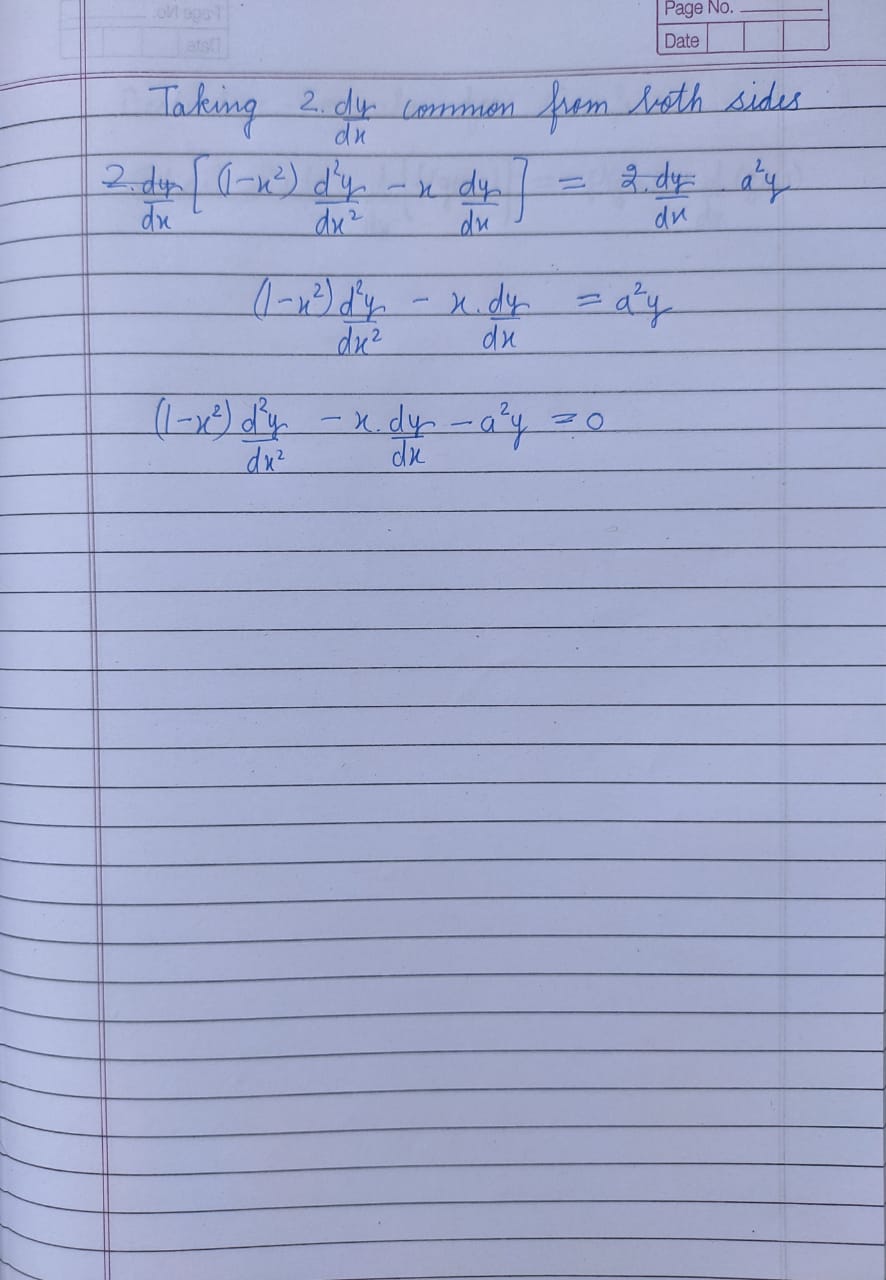 Page No.
Date
Taking 2. dy/dx common from both sides
2. dy/dx [ (1-x²) d²y/dx² - x dy/dx ] = 2. dy/dx . a²y
(1-x²) d²y/dx² - x. dy/dx = a²y
(1-x²) d²y/dx² - x. dy/dx - a²y = 0